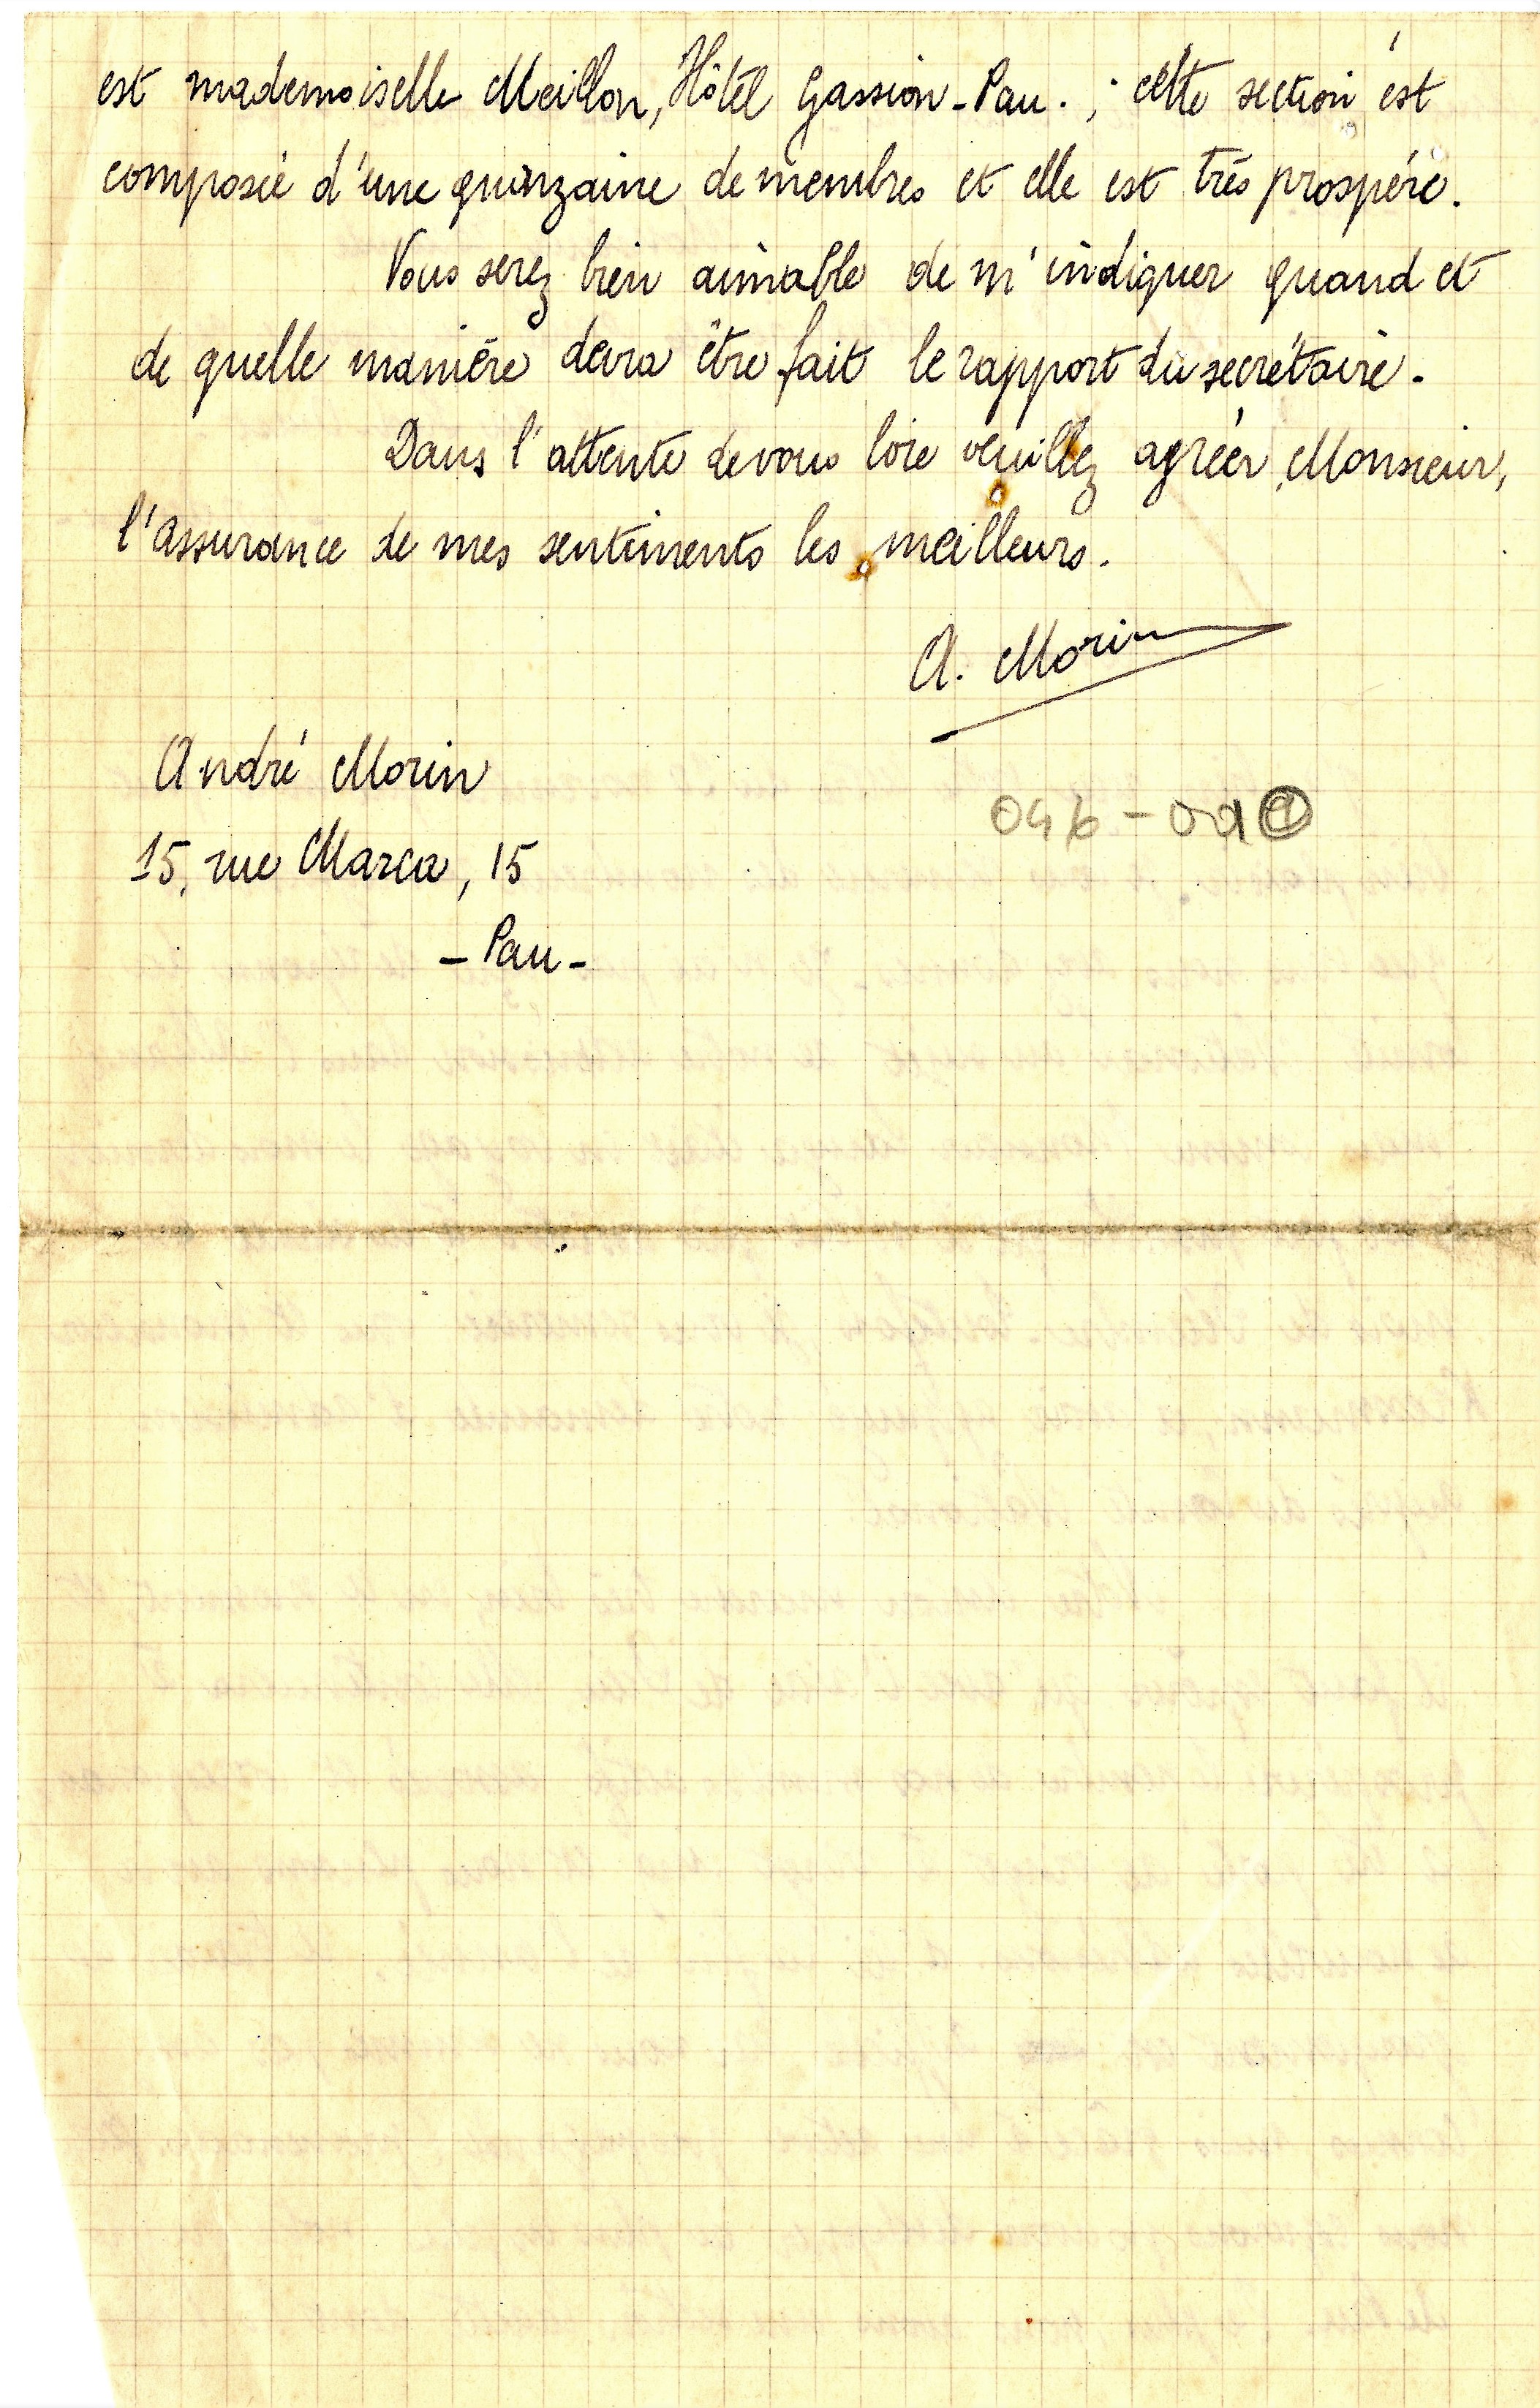 est mademoiselle Meillon, Hôtel Gassion - Pau. ; cette section est
composée d'une quinzaine de membres et elle est très prospère.
Vous serez bien aimable de m'indiquer quand et
de quelle manière devra être fait le rapport du secrétaire.
Dans l'attente de vous lire veuillez agréer, Monsieur,
l'assurance de mes sentiments les meilleurs.
A. Morin
André Morin
15, rue Marca, 15
- Pau -